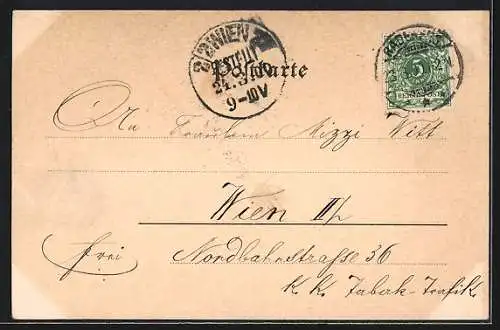 WIEN
BESTELLT
9-10V
Postkarte
5
REICHSPOST
An Fräulein Mizzi Witt
Wien II/2
frei
Nordbahnstrasse 36
K. K. Tabak-Trafik